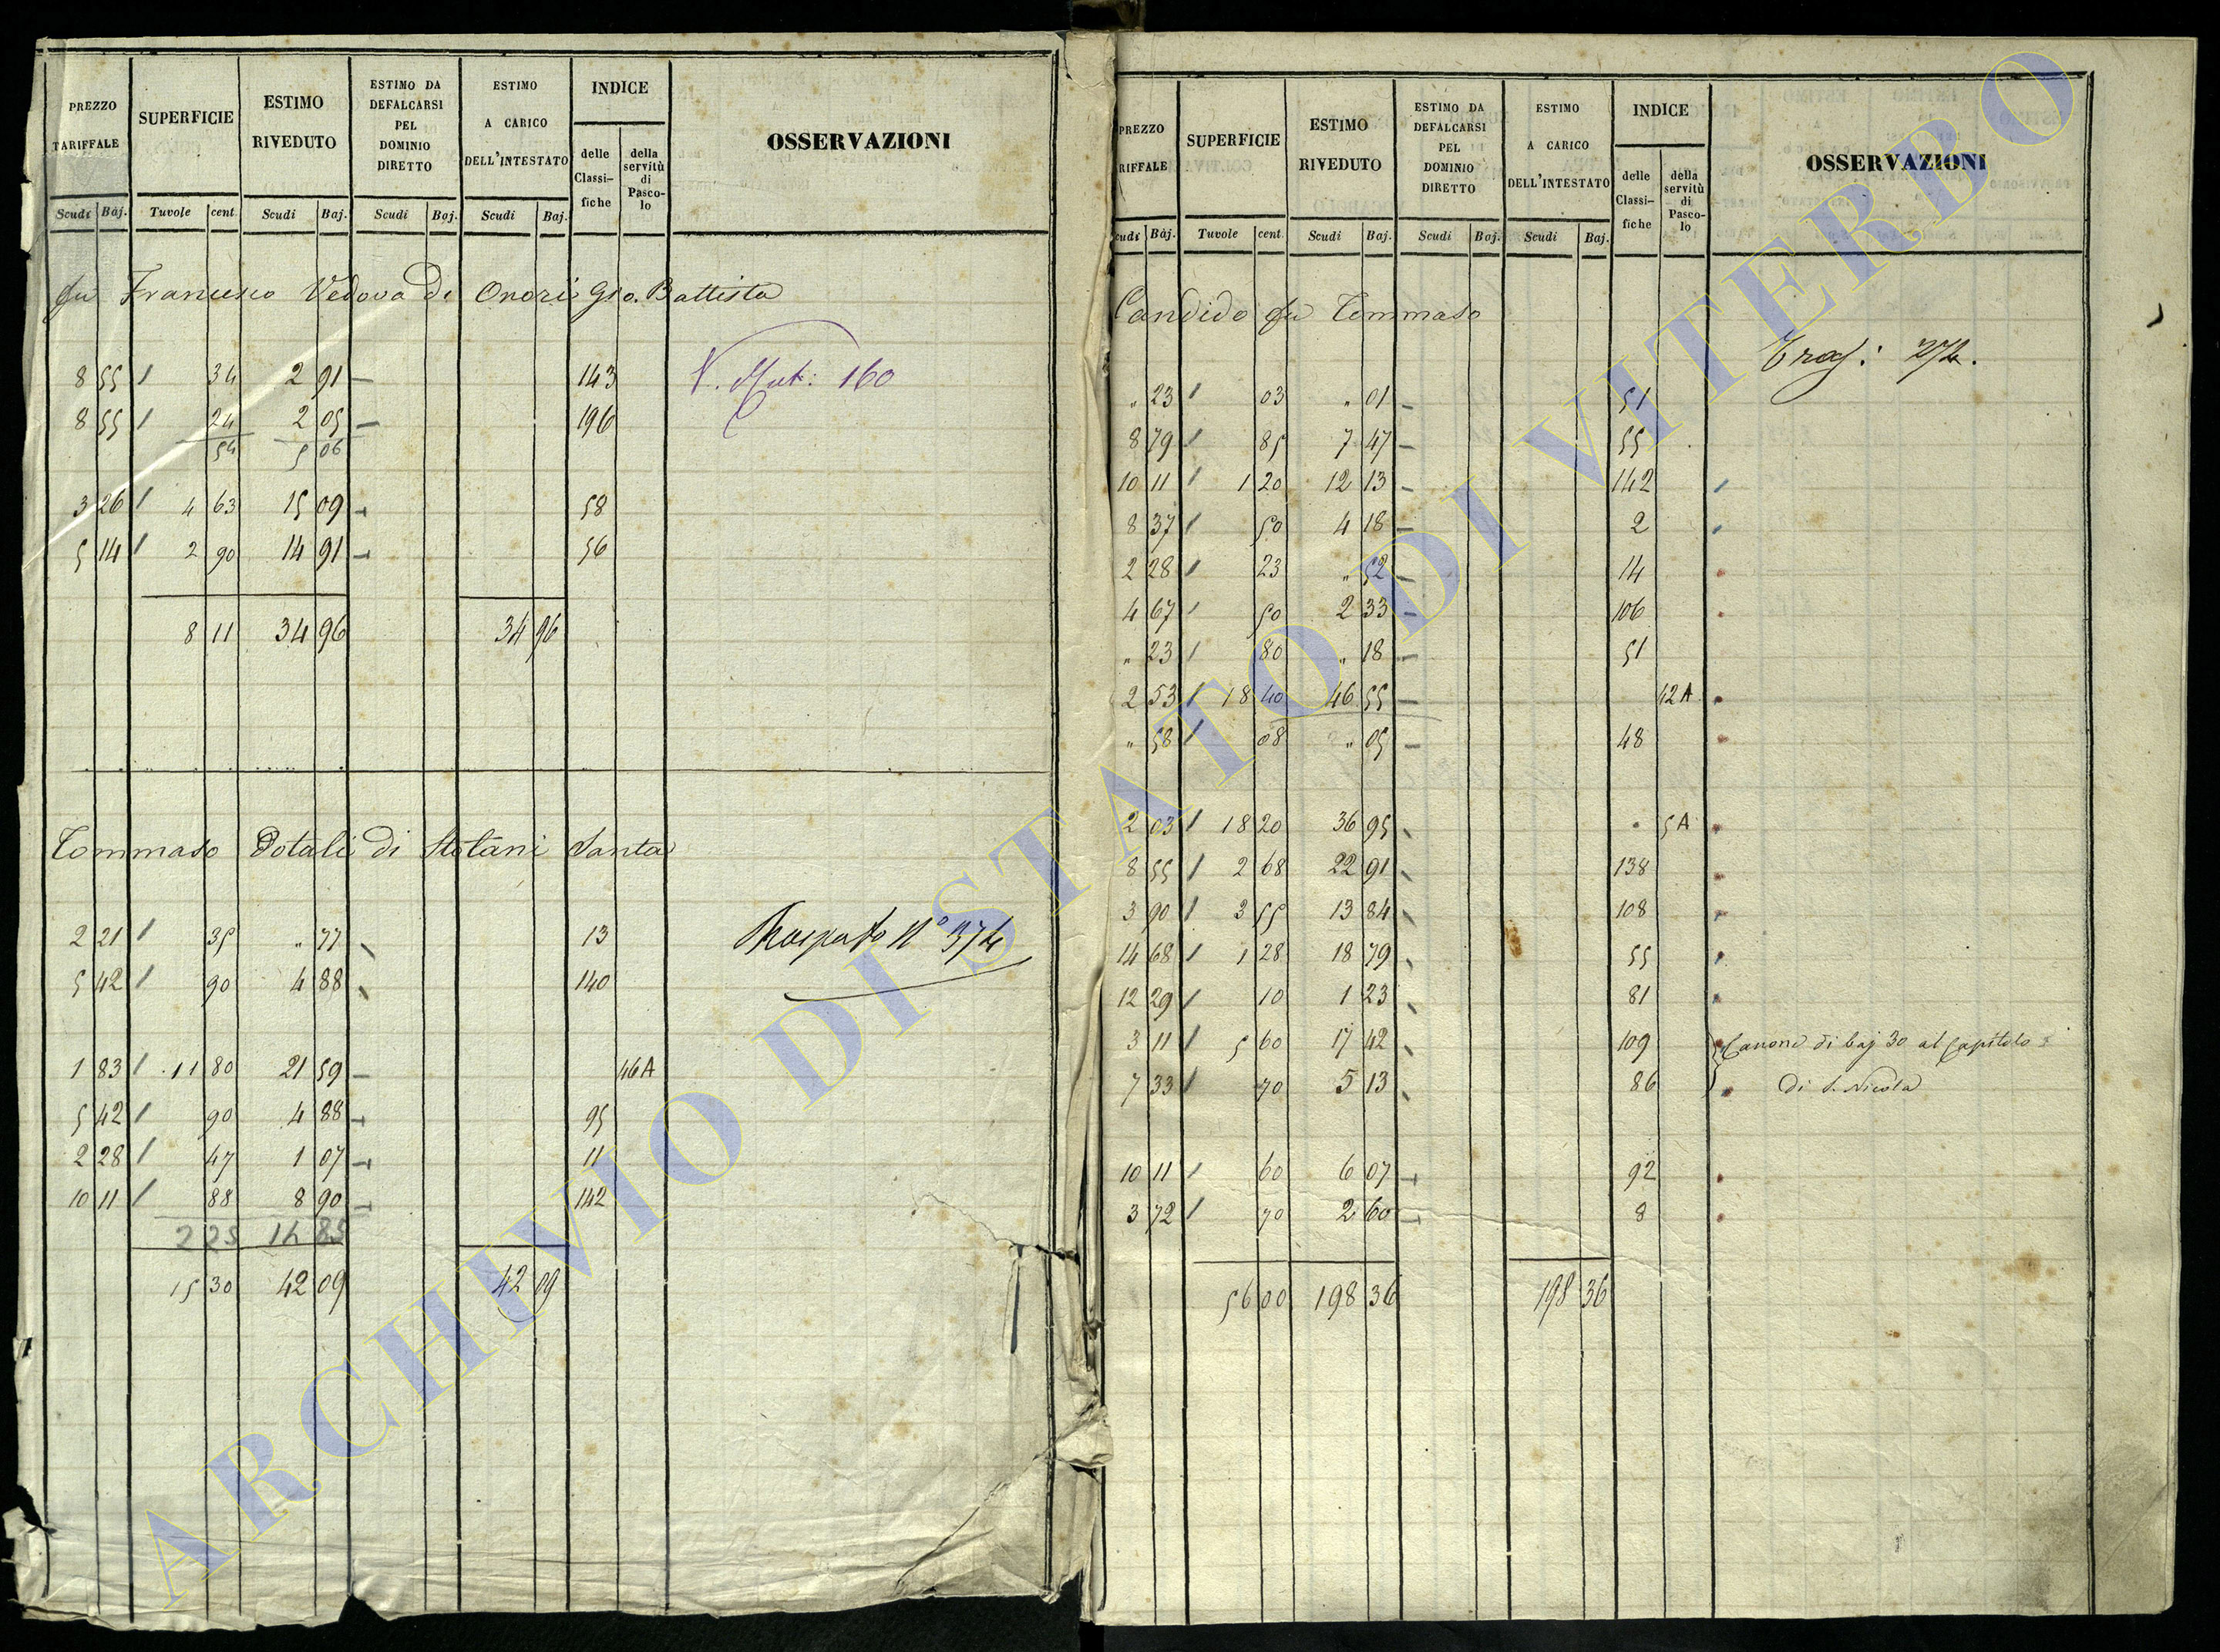 PREZZO TARIFFALE | SUPERFICIE | ESTIMO RIVEDUTO | ESTIMO DA DEFALCARSI PEL DOMINIO DIRETTO | ESTIMO A CARICO DELL'INTESTATO | INDICE | OSSERVAZIONI
delle Classifiche | della servitù di Pascolo
Scudi | Baj. | Tavole | cent. | Scudi | Baj. | Scudi | Baj. | Scudi | Baj.
fu Francesco Vedova di Onori Gio. Battista
8 55 / 34 2 91 — 143 V. Mut: 160
8 55 / 24 2 05 — 196
54 5 06
3 26 / 4 63 15 09 58
5 14 / 2 90 14 91 56
8 11 34 96 34 96
Tommaso Dotali di Stolani Santa
2 21 / 35 " 77 13 Trasporto N° 374
5 42 / 90 4 88 140
1 83 / 11 80 21 59 — 46A
5 42 / 90 4 88 95
2 28 / 47 1 07 11
10 11 / 88 8 90 142
2 25 14 85
15 30 42 09 42 09
PREZZO RIFFALE | SUPERFICIE | ESTIMO RIVEDUTO | ESTIMO DA DEFALCARSI PEL DOMINIO DIRETTO | ESTIMO A CARICO DELL'INTESTATO | INDICE | OSSERVAZIONI
delle Classifiche | della servitù di Pascolo
cudi | Baj. | Tavole | cent. | Scudi | Baj. | Scudi | Baj. | Scudi | Baj.
Candido fu Tommaso
Trasp: 274.
" 23 / 03 " 01 — 51
8 79 / 85 7 47 — 55
10 11 / 1 20 12 13 — 142
8 37 / 50 4 18 — 2
2 28 / 23 " 52 — 14
4 67 / 50 2 33 — 106
" 23 / 80 " 18 — 51
2 53 / 18 40 46 55 — 42A
" 58 / 08 " 05 — 48
2 03 / 18 20 36 95 5A
8 55 / 2 68 22 91 138
3 90 / 3 55 13 84 108
14 68 / 1 28 18 79 55
12 29 / 10 1 23 81
3 11 / 5 60 17 42 109 Canone di baj 30 al Capitolo
7 33 / 70 5 13 86 di S. Nicola
10 11 / 60 6 07 92
3 72 / 70 2 60 8
56 00 198 36 198 36
ARCHIVIO DI STATO DI VITERBO